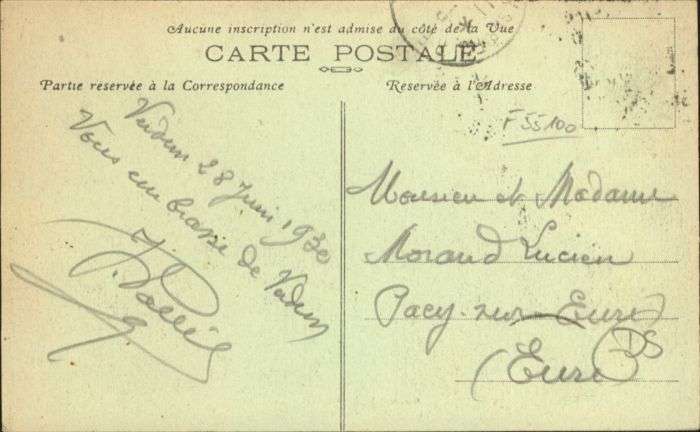 Aucune inscription n'est admise du côté de la Vue
CARTE POSTALE
Partie réservée à la Correspondance
Réservée à l'Adresse
F 55100
Verdun 28 Juin 1930
Vous embrasse de Verdun
Monsieur et Madame
Morand Lucien
Pacy-sur-Eure
(Eure)
DS